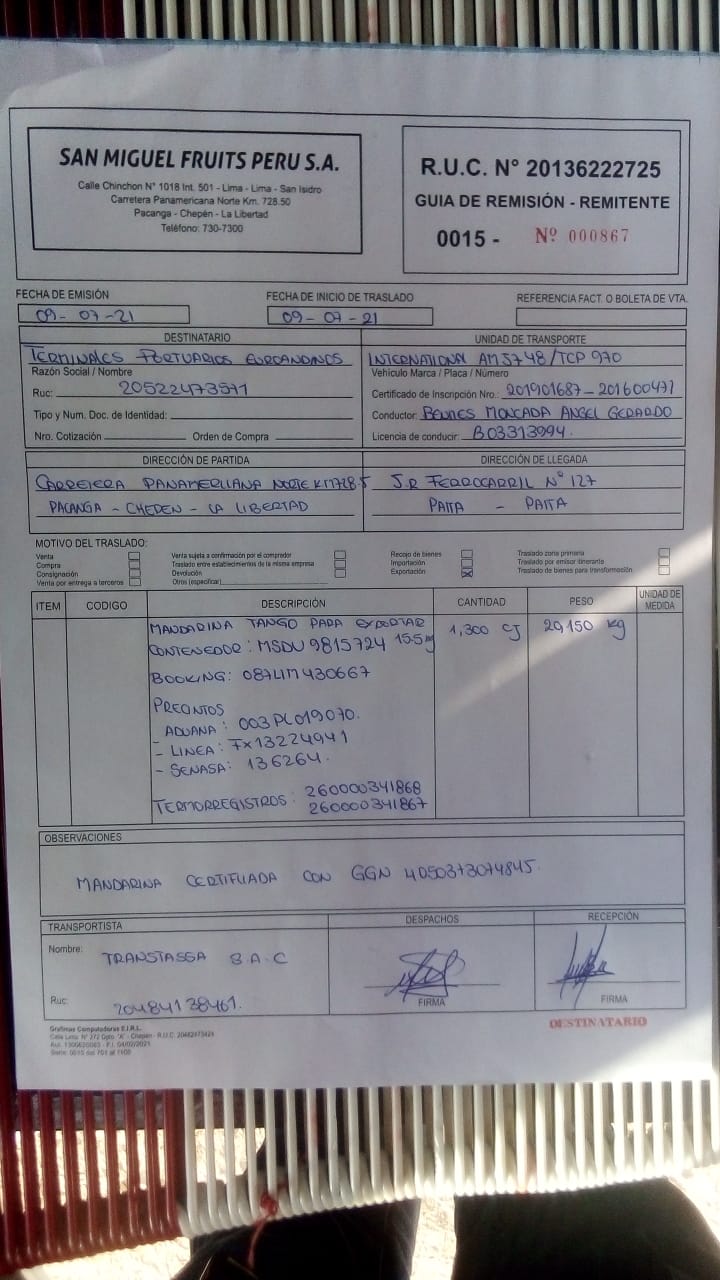 SAN MIGUEL FRUITS PERU S.A.
Calle Chinchon N° 1018 Int. 501 - Lima - Lima - San Isidro
Carretera Panamericana Norte Km. 728.50
Pacanga - Chepén - La Libertad
Teléfono: 730-7300
R.U.C. N° 20136222725
GUIA DE REMISIÓN - REMITENTE
0015 - Nº 000867
FECHA DE EMISIÓN
09-07-21
FECHA DE INICIO DE TRASLADO
09-07-21
REFERENCIA FACT. O BOLETA DE VTA.
DESTINATARIO
TERMINALES PORTUARIOS EUROANDINOS
Razón Social / Nombre
Ruc: 20522473571
Tipo y Num. Doc. de Identidad:
Nro. Cotización Orden de Compra
UNIDAD DE TRANSPORTE
INTERNATIONAL AM3748/TCP 970
Vehículo Marca / Placa / Número
Certificado de Inscripción Nro.: 201901687-201600471
Conductor: BENITES MONCADA ANGEL GERARDO
Licencia de conducir: B03313994.
DIRECCIÓN DE PARTIDA
CARRETERA PANAMERICANA NORTE KM728.5
PACANGA - CHEPEN - LA LIBERTAD
DIRECCIÓN DE LLEGADA
J.R FERROCARRIL N° 127
PAITA - PAITA
MOTIVO DEL TRASLADO:
Venta
Compra
Consignación
Venta por entrega a terceros
Venta sujeta a confirmación por el comprador
Traslado entre establecimientos de la misma empresa
Devolución
Otros (especificar)
Recojo de bienes
Importación
Exportación
Traslado zona primaria
Traslado por emisor itinerante
Traslado de bienes para transformación
ITEM CODIGO DESCRIPCIÓN CANTIDAD PESO UNIDAD DE MEDIDA
MANDARINA TANGO PARA EXPORTAR 1,300 CJ 20,150 kg
CONTENEDOR: MSDU 9815724 15.5 kg
BOOKING: 087LIM430667
PRECINTOS
- ADUANA: 003PL019070.
- LINEA: FX13224941
- SENASA: 136264.
TERMORREGISTROS: 260000341868
260000341867
OBSERVACIONES
MANDARINA CERTIFICADA CON GGN 4050373074845.
TRANSPORTISTA
Nombre: TRANSTASSA S.A.C
Ruc: 20484138461.
DESPACHOS
FIRMA
RECEPCIÓN
FIRMA
DESTINATARIO
Grafimas Computadoras E.I.R.L.
Serie: 0015 del 701 al 1100